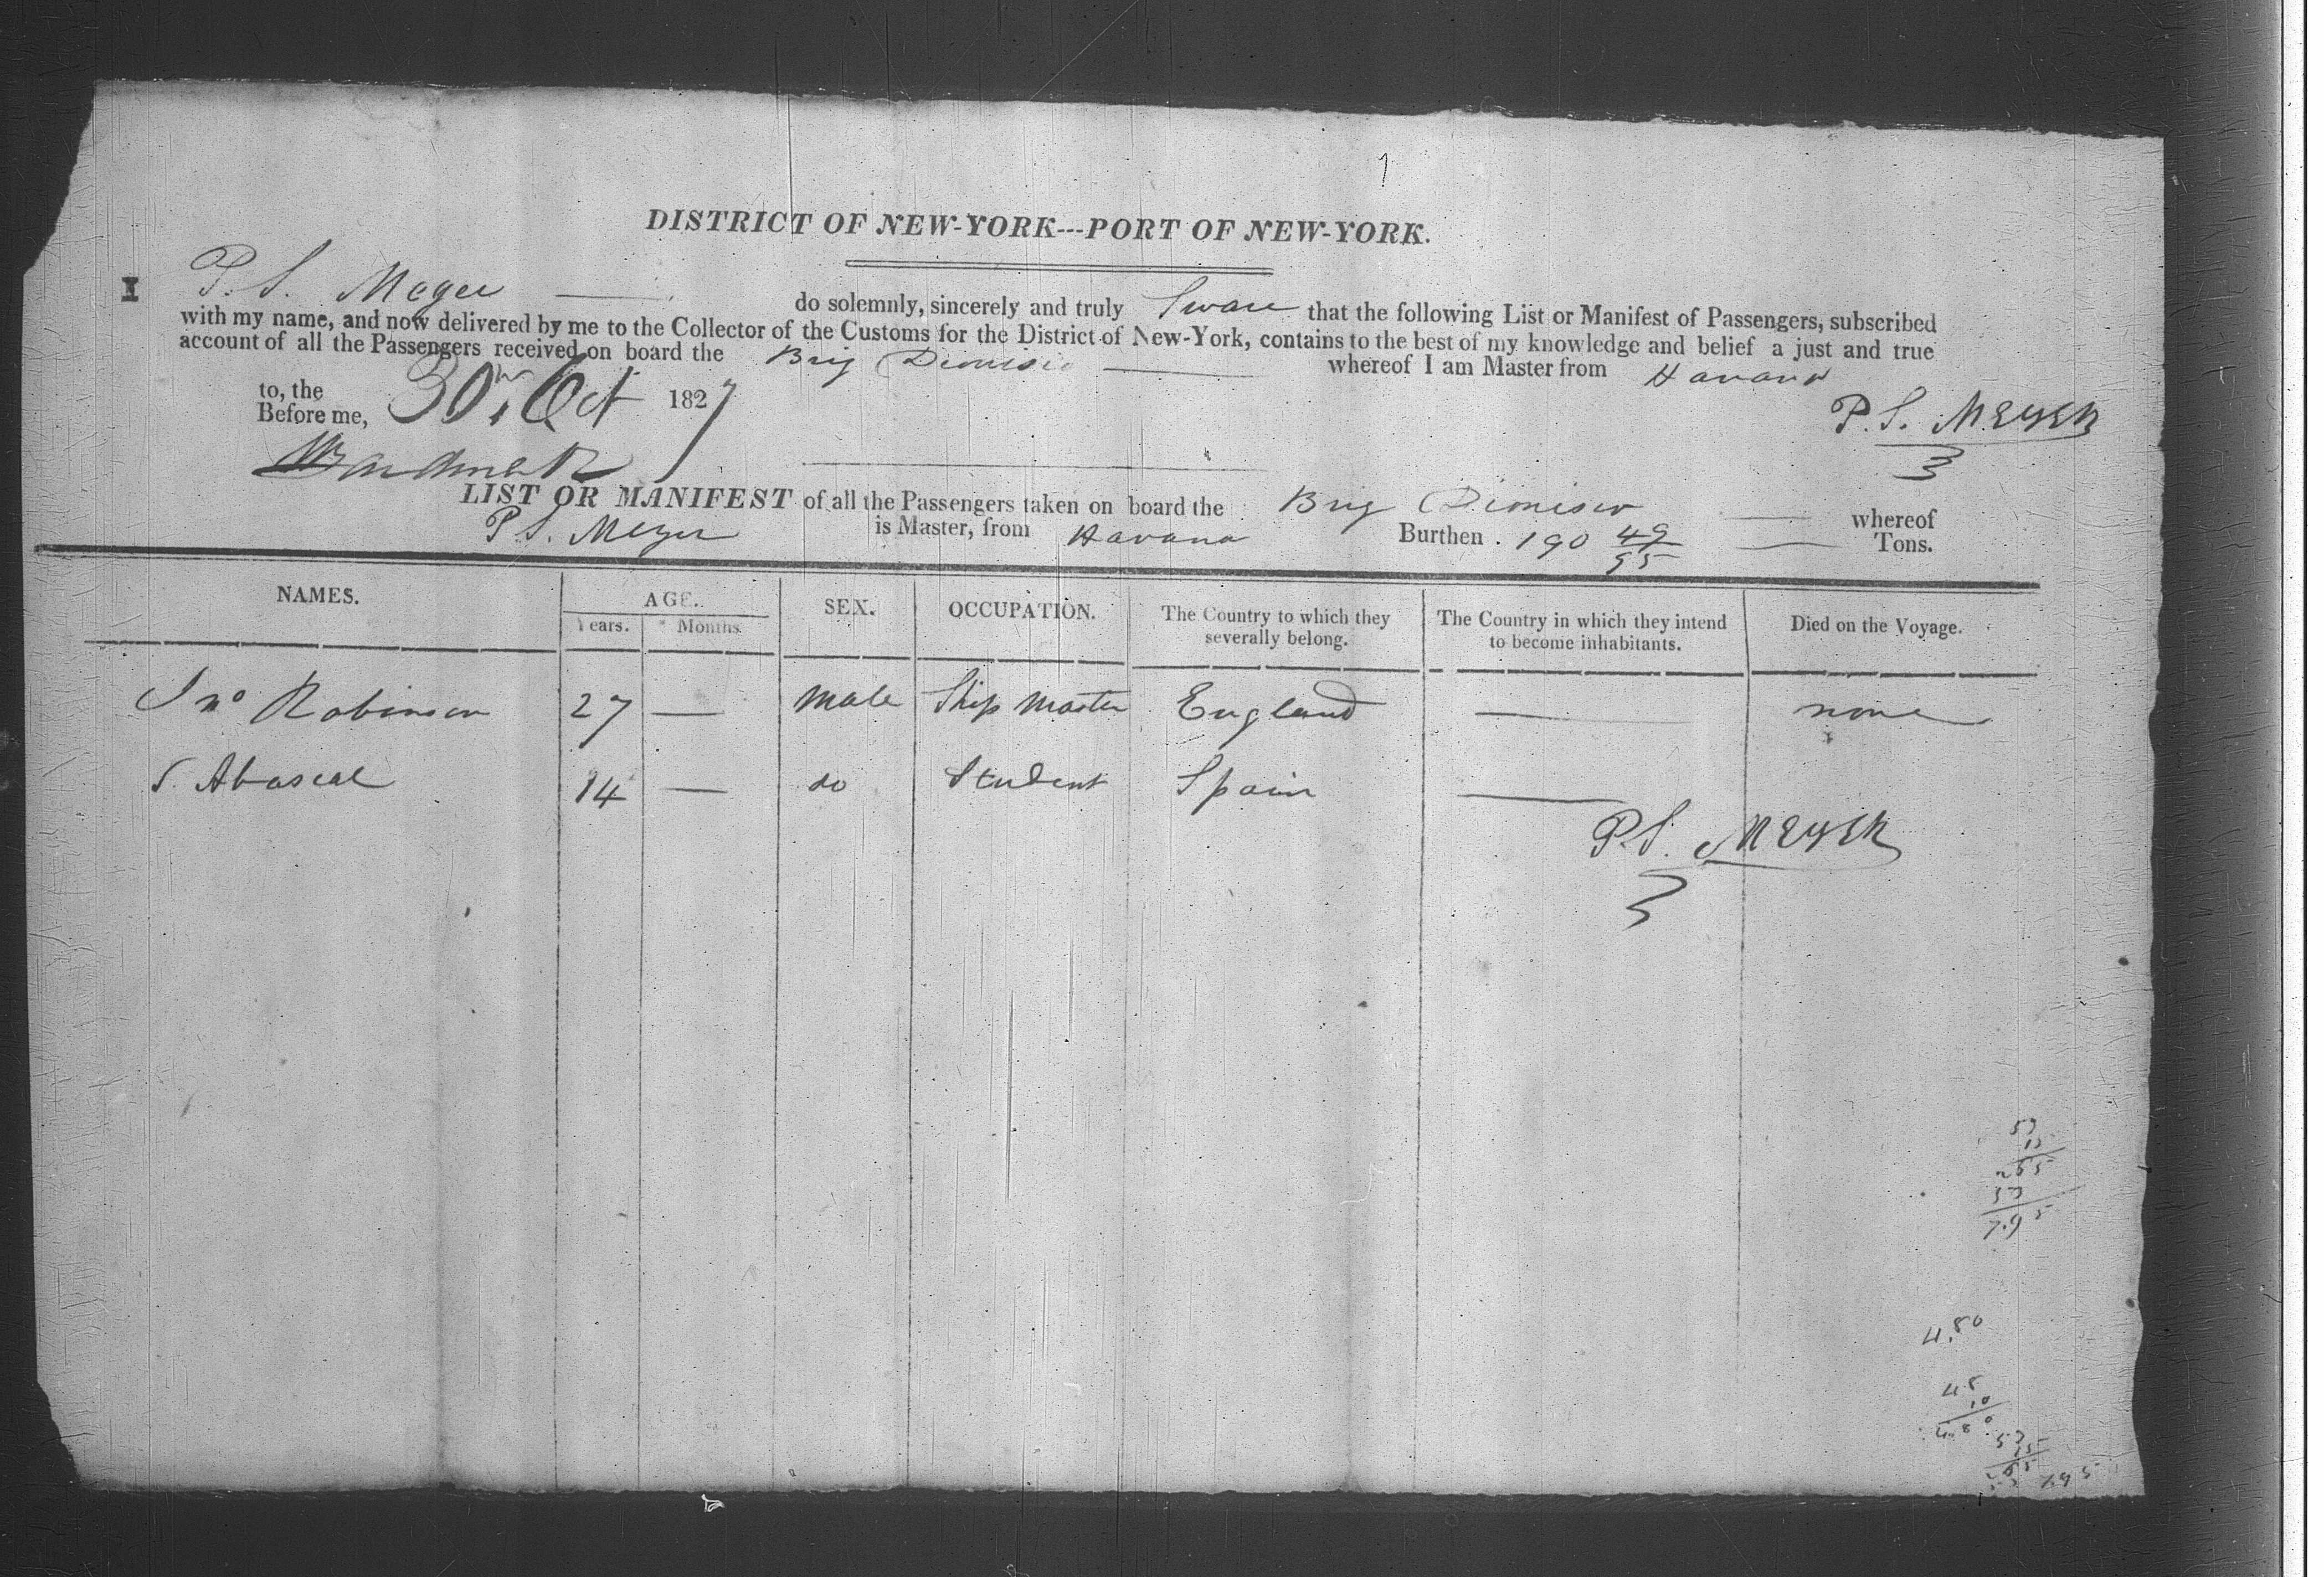 1
DISTRICT OF NEW-YORK---PORT OF NEW-YORK.
I P. S. Meyer do solemnly, sincerely and truly Swear that the following List or Manifest of Passengers, subscribed
with my name, and now delivered by me to the Collector of the Customs for the District of New-York, contains to the best of my knowledge and belief a just and true
account of all the Passengers received on board the Brig Dionisio whereof I am Master from Havana
to, the 30th Oct 1827
Before me,
P. S. MEYER
LIST OR MANIFEST of all the Passengers taken on board the Brig Dionisio whereof
P S. Meyer is Master, from Havana Burthen . 190 49/95 Tons.
NAMES. AGE. SEX. OCCUPATION. The Country to which they severally belong. The Country in which they intend to become inhabitants. Died on the Voyage.
Years. Months.
Jno Robinson 27 — Male Ship Master England — none
S. Abascal 14 — do Student Spain —
P. S. MEYER
53
15
265
53
7.95
4.80
48
10
4.80
53
15
265
53
7.95